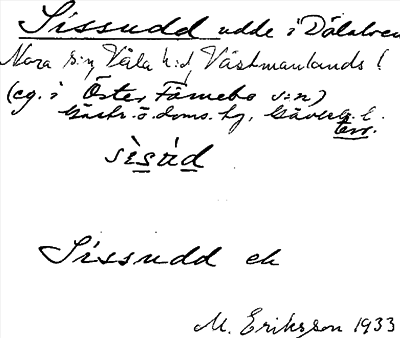 Sissudd udde i Dalälven
Nora s:n Våla h:d Västmanlands l
(eg. i Öster Färnebo s:n)
Gästr. ö. doms. hg. Gävleb. l.
Terr.
sìsùd
Sissudd ek
M. Eriksson 1933